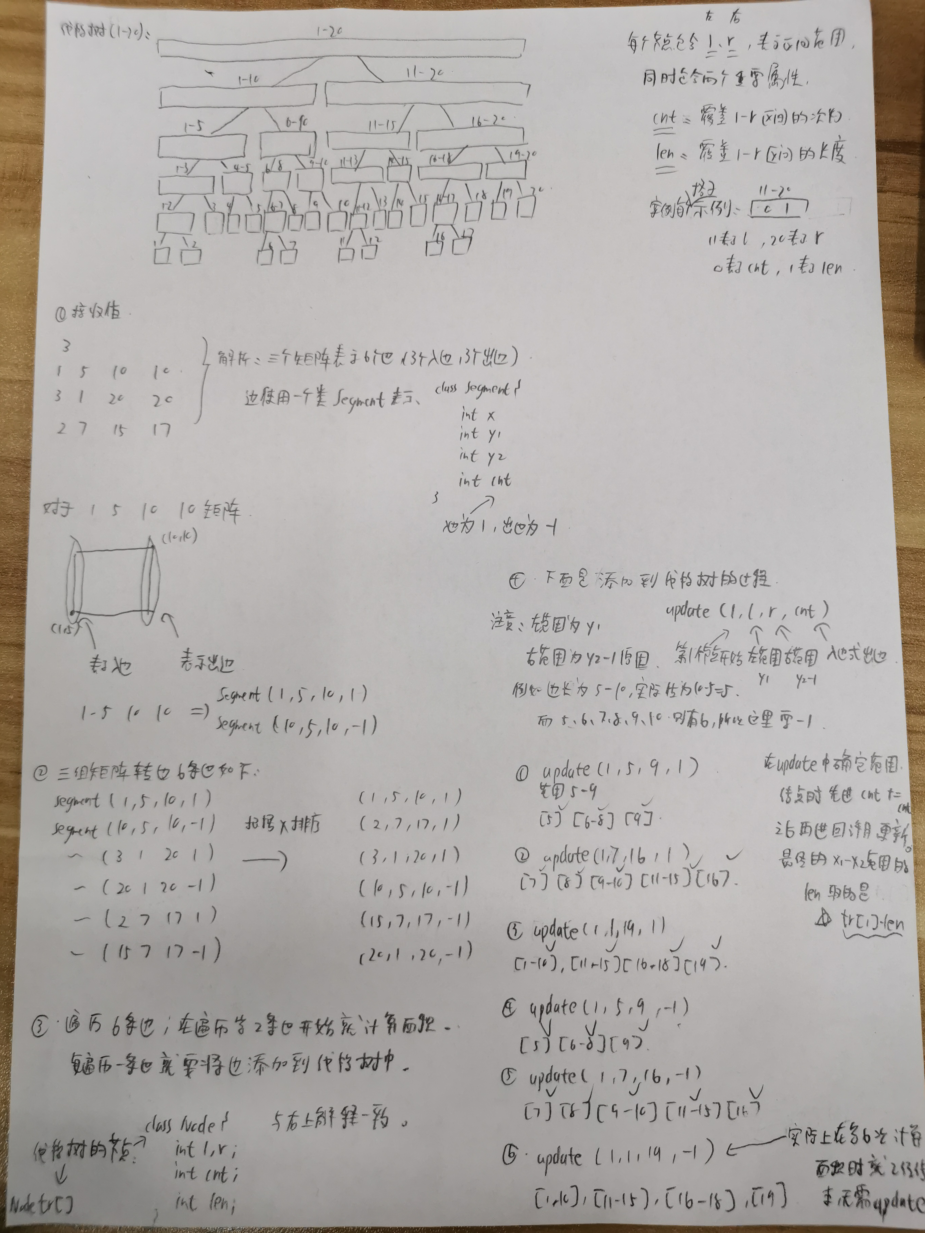 线段树(1-20):
1-20
1-10 11-20
1-5 6-10 11-15 16-20
1-3 4-5 6-8 9-10 11-13 14-15 16-18 19-20
左 右
每个节点包含 l、r, 表示区间范围.
同时包含两个重要属性.
cnt: 覆盖 l-r 区间的次数
len: 覆盖 l-r 区间的长度
示例:
11-20
0 1
11表示 l , 20表示 r
0表示 cnt , 1表示 len
① 接收值
3
1 5 10 10
3 1 20 20
2 7 15 17
解析: 三个矩阵表示6个边 (3个入边, 3个出边)
边使用一个类 Segment 表示、
class Segment{
int x
int y1
int y2
int cnt
}
入边为 1, 出边为 -1
对于 1 5 10 10 矩阵.
(10,10)
(1,5)
表示入边 表示出边
1-5 10 10 =>
Segment (1, 5, 10, 1)
Segment (10, 5, 10, -1)
② 三组矩阵转边6条边如下:
segment (1, 5, 10, 1)
segment (10, 5, 10, -1)
~ (3 1 20 1)
~ (20 1 20 -1)
~ (2 7 17 1)
~ (15 7 17 -1)
按照 x 排序
(1, 5, 10, 1)
(2, 7, 17, 1)
(3, 1, 20, 1)
(10, 5, 10, -1)
(15, 7, 17, -1)
(20, 1, 20, -1)
③ 遍历 6条边; 在遍历第2条边开始就计算面积.
每遍历一条边就要将边添加到线段树中.
线段树的节点:
Node tr[]
class Node{
int l, r;
int cnt;
int len;
}
与右上解释一致。
④ 下面是添加到线段树的过程
update (1, l, r, cnt)
注意: 左范围为 y1
右范围为 y2-1 范围
第1个节点开始 左范围 右范围 入边或出边
y1 y2-1
例如 边长为 5-10, 实际长为10-5=5.
而 5、6、7、8、9、10 则有6, 所以这里要 -1
① update (1, 5, 9, 1)
范围 5-9
[5] [6-8] [9].
② update (1, 7, 16, 1)
[7] [8] [9-10] [11-15] [16].
③ update (1, 1, 19, 1)
[1-10], [11-15] [16-18] [19].
④ update (1, 5, 9, -1)
[5] [6-8] [9].
⑤ update (1, 7, 16, -1)
[7] [8] [9-10] [11-15] [16]
⑥ update (1, 1, 19, -1)
[1,10], [11-15], [16-18], [19]
在update中确定范围
节点时先把 cnt +=
cnt
之后再返回清用更新。
最终的 x1-x2范围的
len 取的是
tr[1].len
实际上在第6次计算
面积时就已经结
束无需update